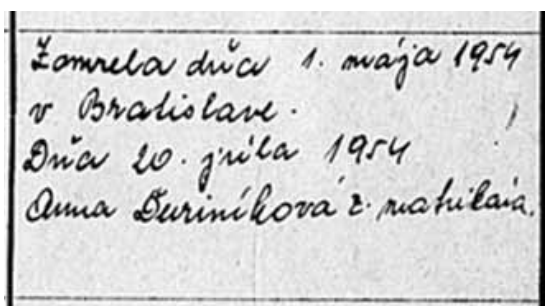 Zomrela dňa 1. mája 1954
v Bratislave.
Dňa 20. júla 1954
Anna Ďuriníková z. matrikára.